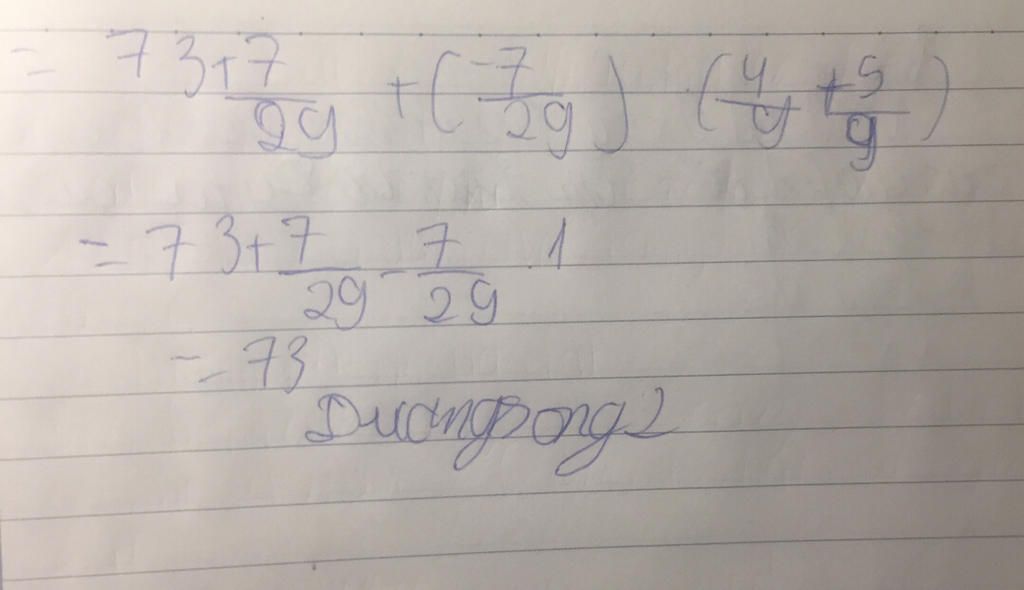 = 73 + 7/29 + (-7/29) (4/9 + 5/9)
= 73 + 7/29 - 7/29 . 1
= 73
Duongsong2